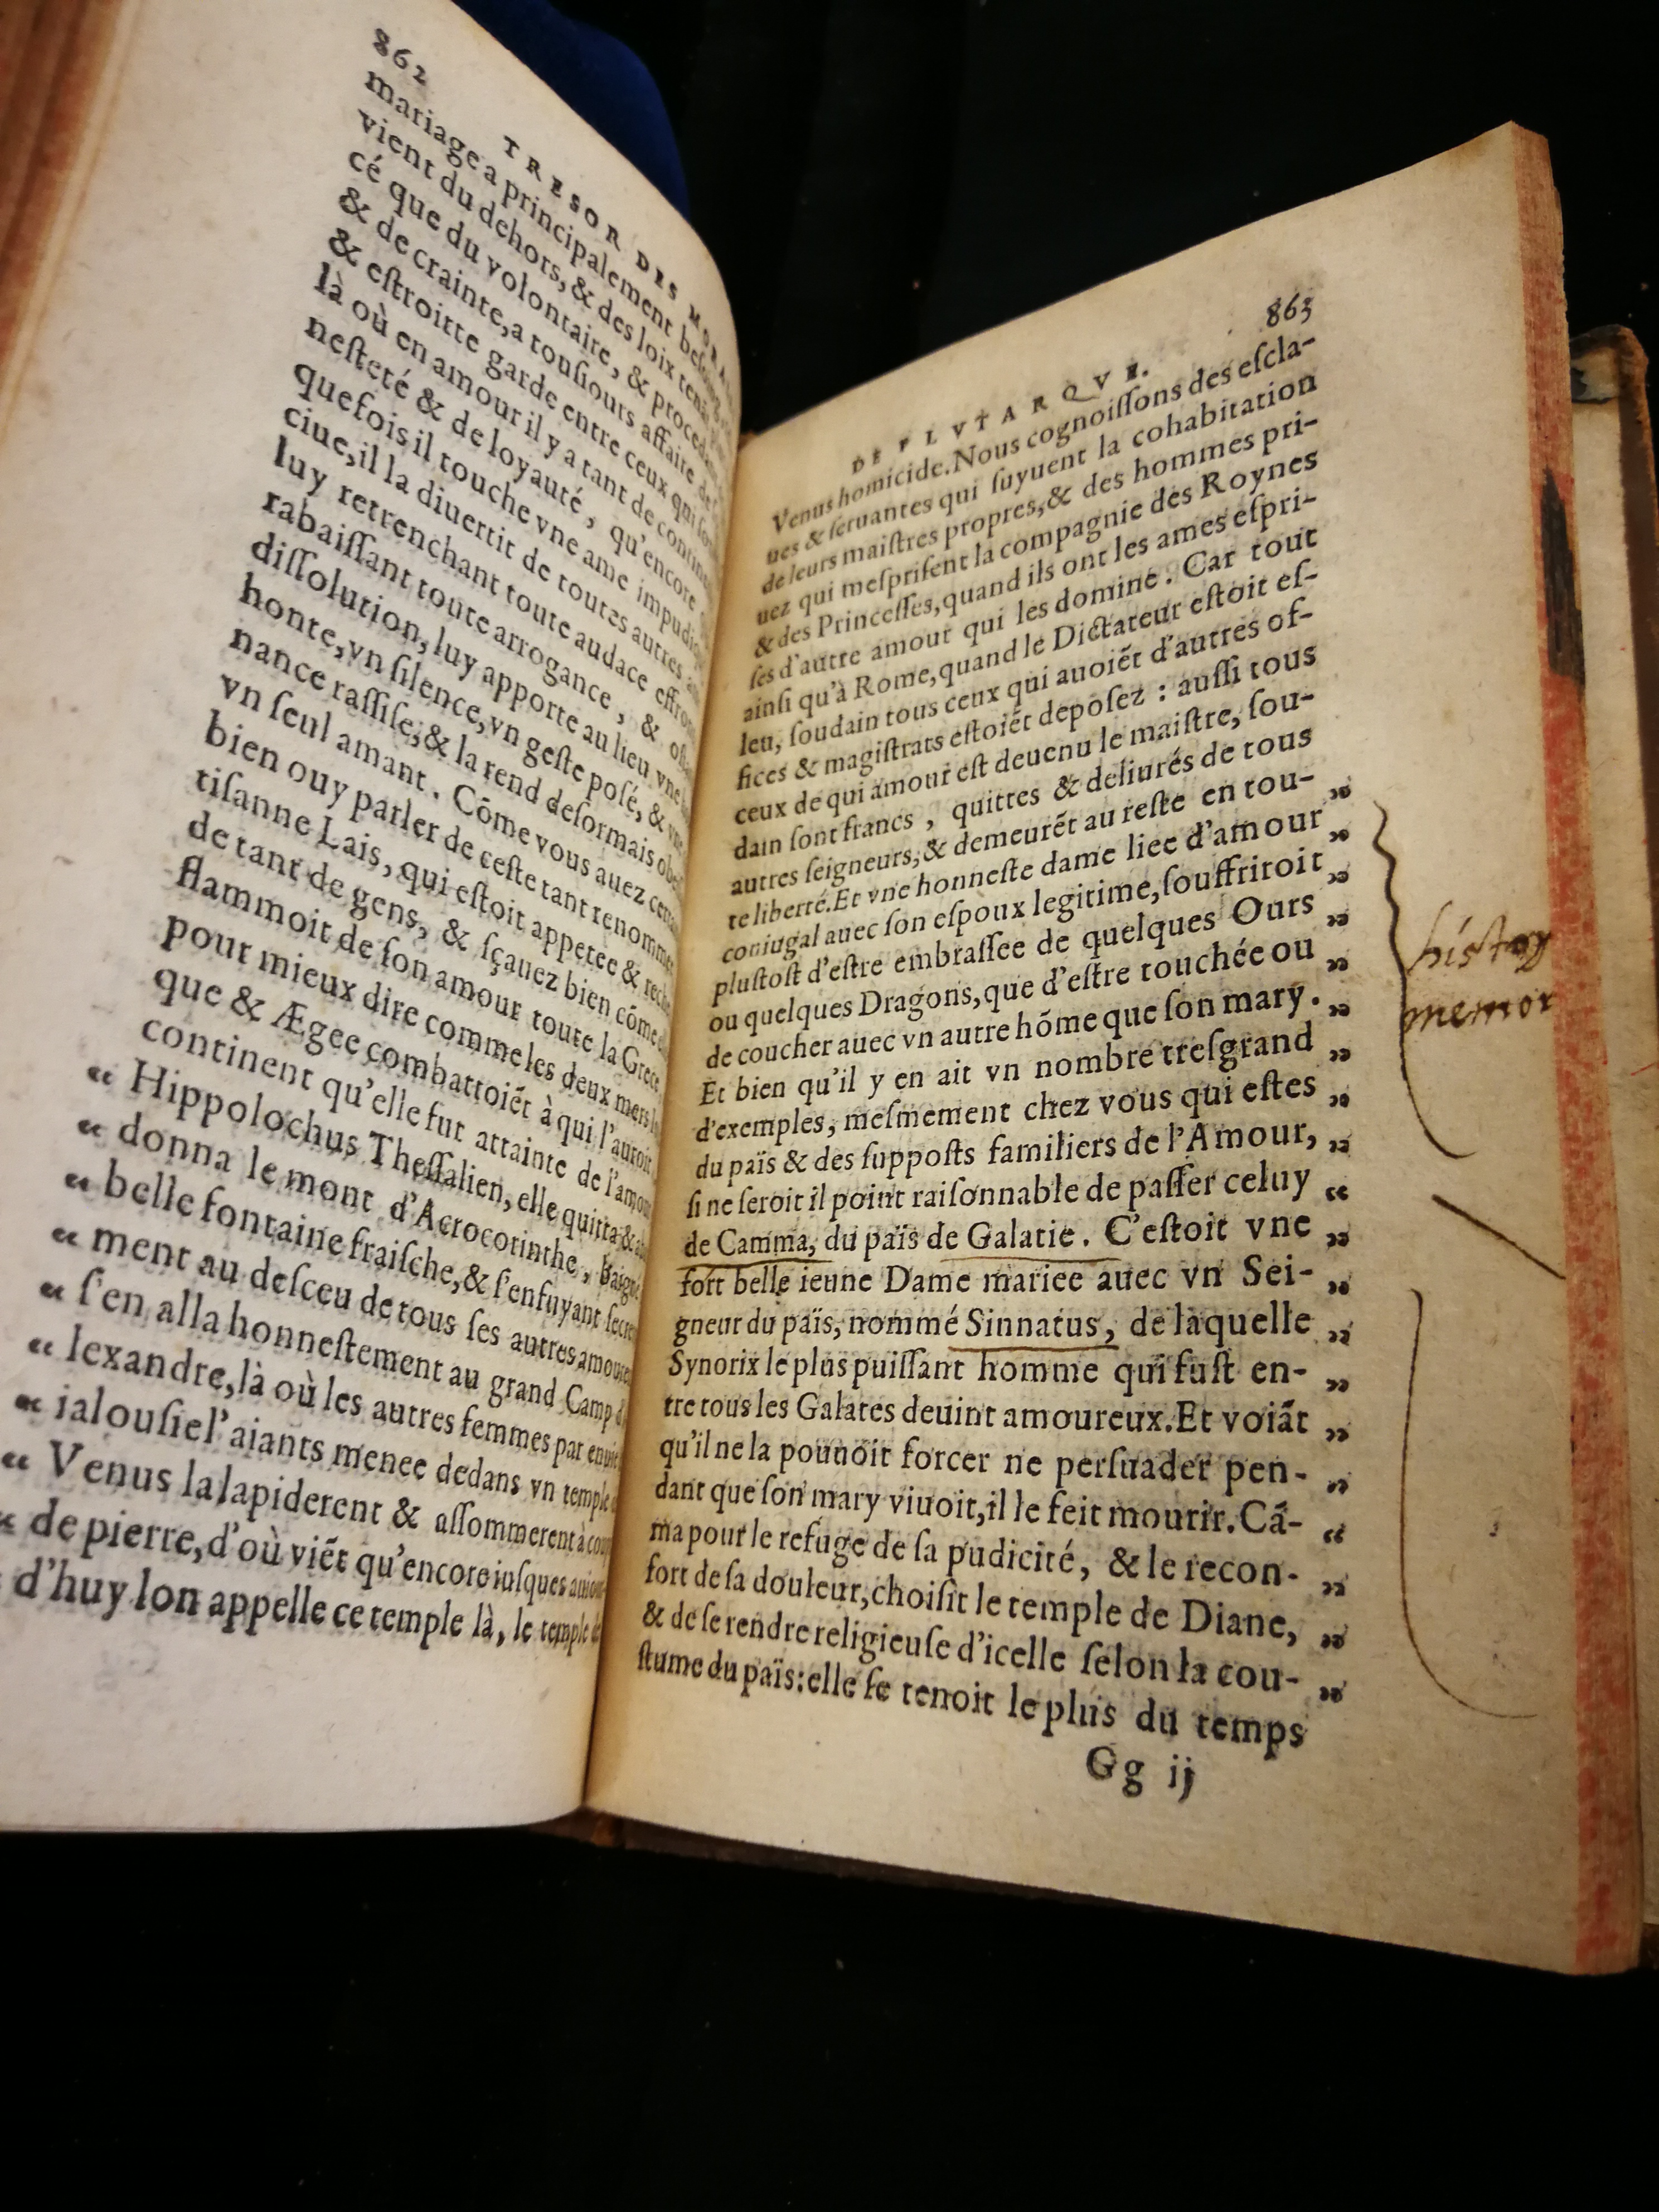 862
TRESOR DES MORA
mariage a principalement
vient du dehors, & des loix
cé que du volontaire, & procedāt
& de crainte, a tousiours affaire de
& estroitte garde entre ceux qui
là où en amour il y a tant de contine
nesteté & de loyauté, qu'encore
quefois il touche vne ame impudi
ciue, il la diuertit de toutes autres
luy retrenchant toute audace effron
rabaissant toute arrogance, &
dissolution, luy apporte au lieu vne
honte, vn silence, vn geste posé, & vne
nance rassise, & la rend desormais obe
vn seul amant. Cōme vous auez
bien ouy parler de ceste tant renommee
tisanne Lais, qui estoit appetee & rech
de tant de gens, & sçauez bien cōme
flammoit de son amour toute la Grece
pour mieux dire comme les deux mers
que & Ægee combattoiēt à qui l'auroit
continent qu'elle fut attainte de l'amour
“ Hippolochus Thessalien, elle quitta &
“ donna le mont d'Acrocorinthe, baigné
“ belle fontaine fraische, & s'enfuyant secre
“ ment au desceu de tous ses autres amoureu
“ s'en alla honnestement au grand Camp
“ lexandre, là où les autres femmes par enuie
“ ialousie l'aiants menee dedans vn temple
“ Venus la lapiderent & assommerent à coups
“ de pierre, d'où viēt qu'encore iusques
d'huy lon appelle ce temple là, le temple
DE PLVTARQVE.
863
Venus homicide. Nous cognoissons des escla-
ues & seruantes qui fuyuent la cohabitation
de leurs maistres propres, & des hommes pri-
uez qui mesprisent la compagnie des Roynes
& des Princesses, quand ils ont les ames espri-
ses d'autre amour qui les domine. Car tout
ainsi qu'à Rome, quand le Dictateur estoit es-
leu, soudain tous ceux qui auoiēt d'autres of-
fices & magistrats estoiēt deposez : aussi tous
ceux de qui amour est deuenu le maistre, sou-
dain sont francs, quittes & deliurés de tous
autres seigneurs, & demeurēt au reste en tou- ”
te liberté. Et vne honneste dame liee d'amour ”
coniugal auec son espoux legitime, souffriroit ”
plustost d'estre embrassee de quelques Ours ”
ou quelques Dragons, que d'estre touchée ou ”
de coucher auec vn autre hōme que son mary. ”
Et bien qu'il y en ait vn nombre tresgrand ”
d'exemples, mesmement chez vous qui estes ”
du païs & des supposts familiers de l'Amour, ”
si ne seroit il point raisonnable de passer celuy “
de Camma, du païs de Galatie. C'estoit vne ”
fort belle ieune Dame mariee auec vn Sei- ”
gneur du païs, nommé Sinnatus, de laquelle ”
Synorix le plus puissant homme qui fust en- ”
tre tous les Galates deuint amoureux. Et voiāt ”
qu'il ne la pouuoit forcer ne persuader pen- ”
dant que son mary viuoit, il le feit mourir. Cā- “
ma pour le refuge de sa pudicité, & le recon- ”
fort de sa douleur, choisit le temple de Diane, ”
& de se rendre religieuse d'icelle selon la cou- ”
stume du païs: elle se tenoit le plus du temps
Gg ij
memor